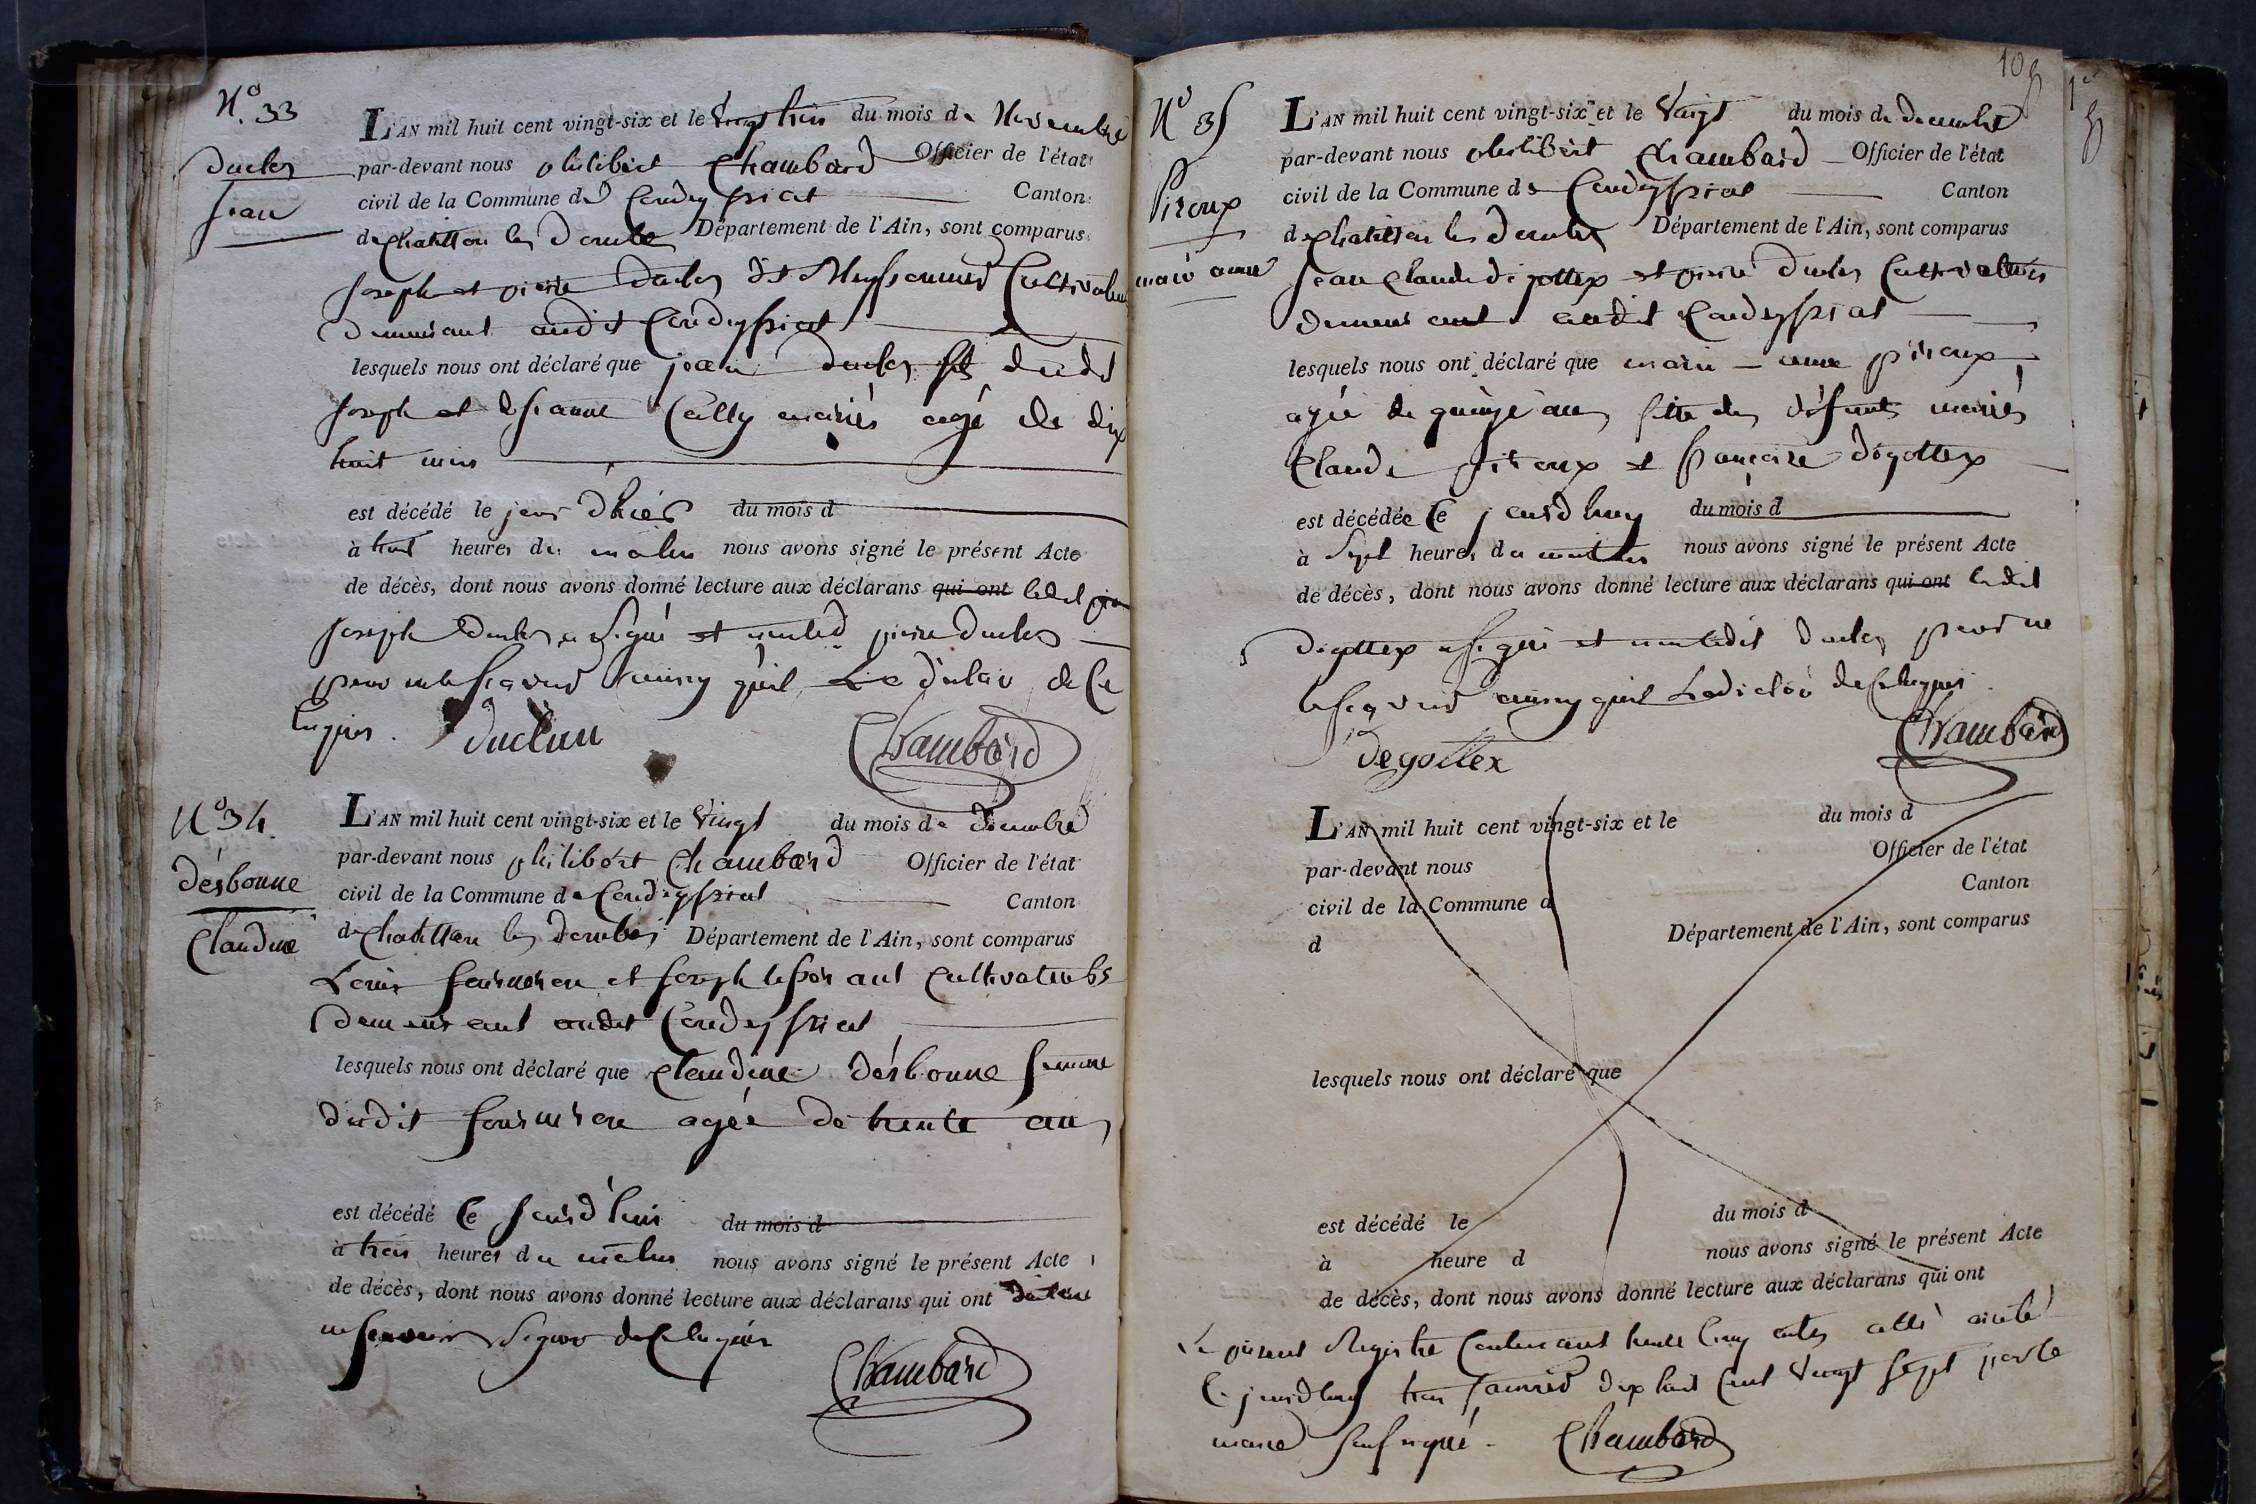 N.º 33
Duclos
jean
L'AN mil huit cent vingt-six et le vingt trois du mois de Novembre
par-devant nous philibert Chambard Officier de l'état
civil de la Commune de Condeyssiat Canton
de chatillon les Dombe Département de l'Ain, sont comparus
joseph et pierre Duclos Cultivateurs
demeurant audit Condeyssiat
lesquels nous ont déclaré que jean Duclos fils dudit
joseph et de jeanne mariés agé de dix
huit mois
est décédé le jour d'hier du mois d
à heures du matin nous avons signé le présent Acte
de décès, dont nous avons donné lecture aux déclarans qui ont ledit
joseph Duclos a signé et non led. pierre Duclos
pour ne le scavoir ainsy qu'il Le déclaré de ce
enquis. Duclau Chambard
Nº 34
Désbonne
Claudine
L'AN mil huit cent vingt-six et le vingt du mois de décembre
par-devant nous philibert Chambard Officier de l'état
civil de la Commune de Condeyssiat Canton
de chatillon les dombes Département de l'Ain, sont comparus
Louis et joseph Cultivateurs
demeurant audit Condeyssiat
lesquels nous ont déclaré que Claudine Désbonne femme
dudit agée de trente ans
est décédé ce jourd'hui du mois d
à trois heures du matin nous avons signé le présent Acte
de décès, dont nous avons donné lecture aux déclarans qui ont déclaré
ne scavoir signer de ce enquis
Chambard
10
Nº 35
Piroux
marie anne
L'AN mil huit cent vingt-six et le vingt du mois de decembre
par-devant nous philibert Chambard Officier de l'état
civil de la Commune de Condeyssiat Canton
de chatillon les dombes Département de l'Ain, sont comparus
jean Claude dégottex et pierre duclos Cultivateurs
demeurant audit Condeyssiat
lesquels nous ont déclaré que marie - anne piroux
agée de quinze ans fille des défunts mariés
Claude piroux et françoise dégottex
est décédée ce jourd'huy du mois d
à sept heures du matin nous avons signé le présent Acte
de décès, dont nous avons donné lecture aux déclarans qui ont ledit
dégottex a signé et non ledit duclos pour ne
le scavoir ainsy qu'il L'a déclaré de ce enquis.
degottex Chambard
L'AN mil huit cent vingt-six et le du mois d
par-devant nous Officier de l'état
civil de la Commune d Canton
d Département de l'Ain, sont comparus
lesquels nous ont déclaré que
est décédé le du mois d
à heure d nous avons signé le présent Acte
de décès, dont nous avons donné lecture aux déclarans qui ont
Le présent Registre Contenant trente cinq actes a été arrêté
Ce jourd'huy trois janvier dix huit cent vingt sept par le
maire soussigné. Chambard